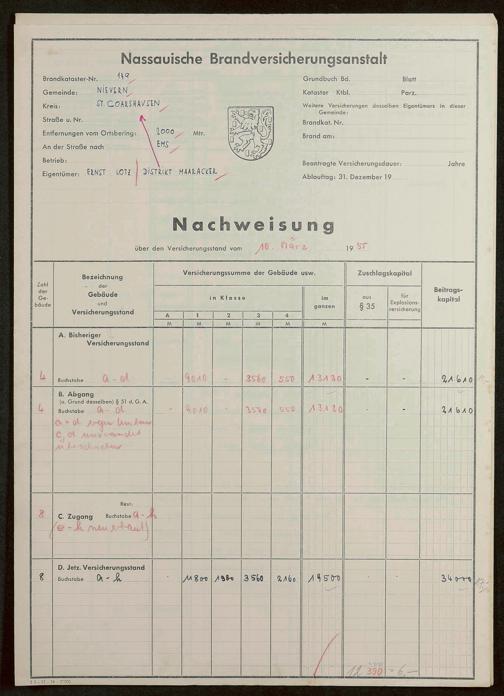 Nassauische Brandversicherungsanstalt
Brandkataster-Nr. 149
Gemeinde: NIEVERN
Kreis: ST. GOARSHAUSEN
Straße u. Nr.
Entfernungen vom Ortsbering: 2000 Mtr.
An der Straße nach EMS
Betrieb:
Eigentümer: ERNST LOTZ / DISTRIKT MAARACKER
Grundbuch Bd. Blatt
Kataster Ktbl. Parz.
Weitere Versicherungen desselben Eigentümers in dieser
Gemeinde:
Brandkat. Nr.
Brand am:
Beantragte Versicherungsdauer: Jahre
Ablauftag: 31. Dezember 19
Nachweisung
über den Versicherungsstand vom 10. März 1955
Zahl der Ge- bäude
Bezeichnung der Gebäude und Versicherungsstand
Versicherungssumme der Gebäude usw.
in Klasse
im ganzen
A 1 2 3 4
M M M M M M
Zuschlagskapital
aus § 35
für Explosions- versicherung
Beitrags- kapital
A. Bisheriger
Versicherungsstand
4 Buchstabe a - d - 9010 - 3560 550 13120 - - 21610
B. Abgang
(a. Grund desselben) § 51 d. G. A.
4 Buchstabe a - d - 9010 - 3570 550 13120 - - 21610
Rest:
8 C. Zugang Buchstabe a - h
(e - h neu erbaut)
D. Jetz. Versicherungsstand
8 Buchstabe a - h - 11800 1980 3560 2160 19500 34000